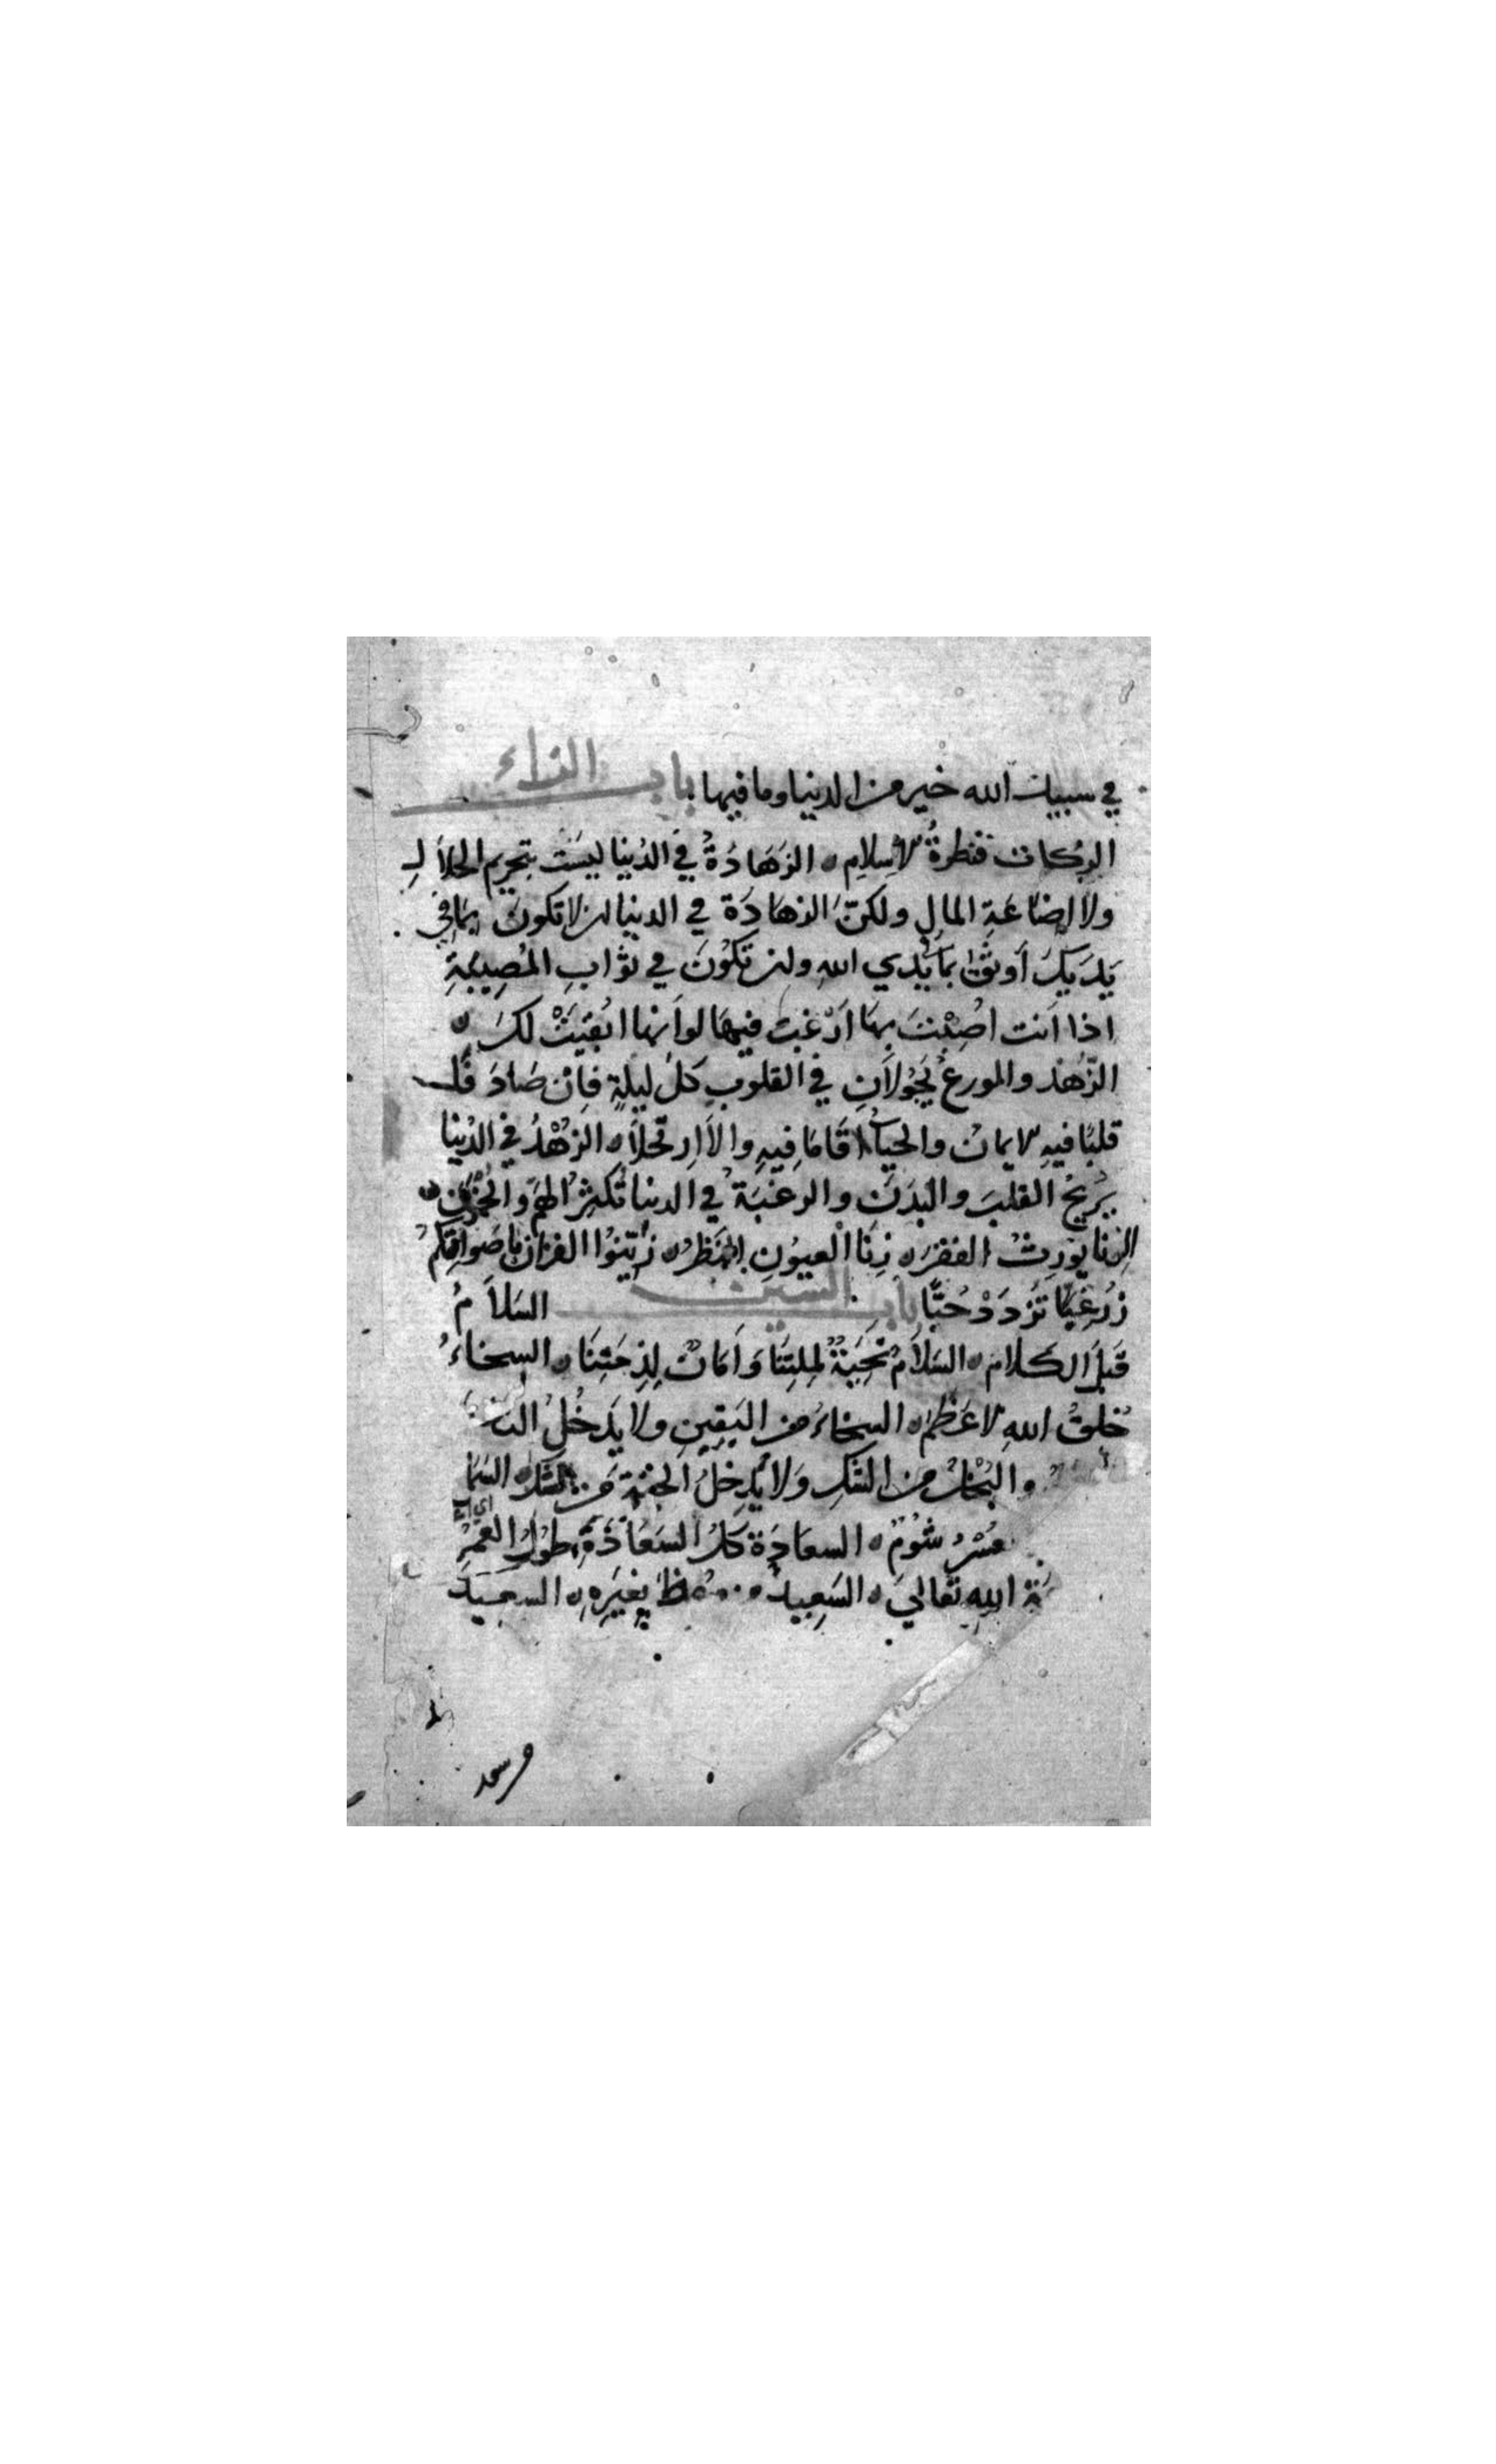 في سبيل الله خير من الدنيا وما فيها باب الزاء
الزكاة قنطرة الاسلام ٥ الزَهَادَةُ في الدُنيا ليسَت بتحريم الحلاَلِ
ولا اِضَاعَةِ المالِ ولكنّ الزهَادَة في الدنيا ان لا تكونَ بمَا في
يَدَيكَ أوثَقَ بمَا بيَدي اللهِ وان تكُونَ في ثوَابِ المُصِيبَةِ
اذا اَنت اُصِبْتَ بهَا اَرْغبَ فيهَا لو اَنها ابُقِيَتْ لكَ ٥
الزّهد والورعُ يَجُولاَنِ في القلوبِ كلَ ليلةٍ فاِنْ صَادَفَا
قلبًا فيهِ الايمان والحياءُ اَقَامَا فِيهِ والاَّ ارتحلاَ ٥ الزهْدُ في الدُنيا
يُرِيحُ القلبَ والبَدَنَ والرغبَةُ في الدنيا تُكثِرُ الهَمَّ والحُزْنَ ٥
الزنا يوُرِثُ الفقرَ ٥ زِنَا العيوُنِ النَظرُ ٥ زَيّنوُا القرانَ باصَواتِكمُ
زُرْ غِبًّا تَزْدَدْ حُبًّا باب السين السَلاَمُ
قَبلَ الكلام ٥ السَلاَمُ تَحِيَةٌ لِملِتِنَا وَاَمَانٌ لِذِمَتِنَا ٥ السخَاءُ
خُلقُ اللهِ الاعَظَم ٥ السخاءُ من اليَقِينِ ولا يَدخُلُ النار
والبُخلُ من الشكِ وَلا يَدخِلُ الجنة من شك ٥ السَمَا
عُسْرُ شُوُمٌ ٥ السعَادَة كلُ السَعَادَةِ طوُلُ العمُرِ
الله تعَالي ٥ السَعِيدُ وُعِظَ بِغيَرِهِ ٥ السعيد